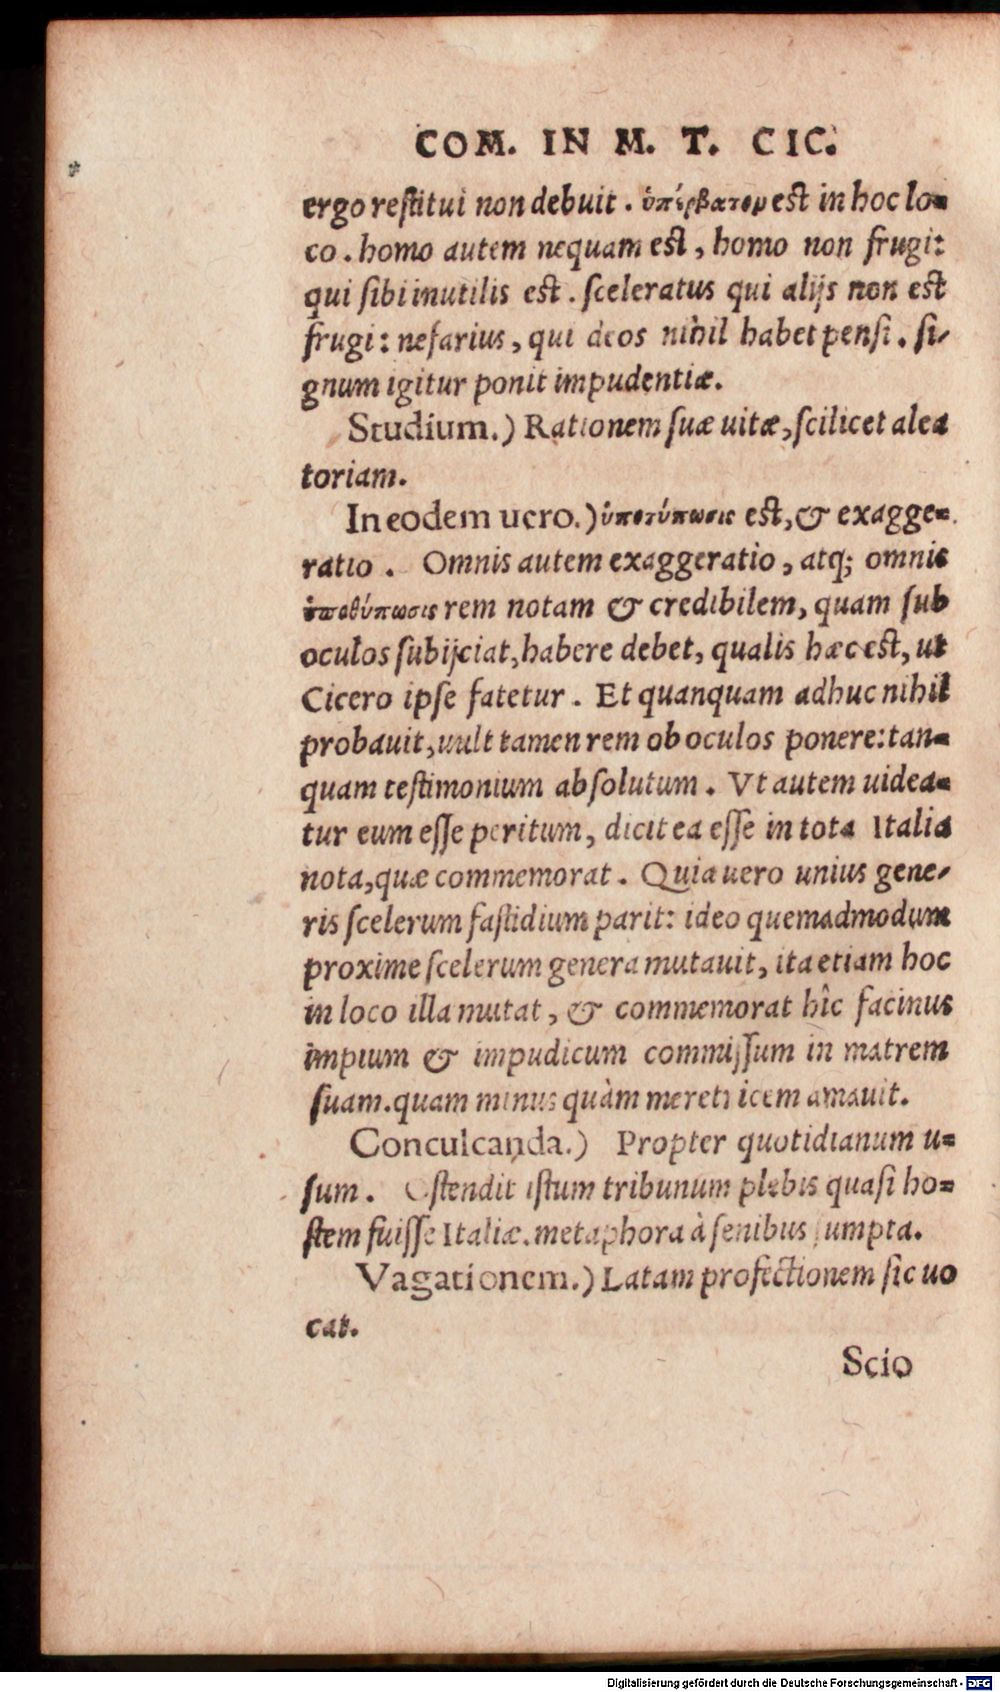 COM. IN M. T. CIC.
ergo restitui non debuit. ὑπέρβατον est in hoc lo=
co. homo autem nequam est, homo non frugi:
qui sibi inutilis est. sceleratus qui alijs non est
frugi: nefarius, qui deos nihil habet pensi. si-
gnum igitur ponit impudentiæ.
Studium.) Rationem suæ uitæ, scilicet alea
toriam.
In eodem uero.) ὑποτύπωσις est, & exagge=
ratio. Omnis autem exaggeratio, atq; omnis
ὑποθύπωσις rem notam & credibilem, quam sub
oculos subijciat, habere debet, qualis hæc est, ut
Cicero ipse fatetur. Et quanquam adhuc nihil
probauit, uult tamen rem ob oculos ponere: tan=
quam testimonium absolutum. Vt autem uidea=
tur eum esse peritum, dicit ea esse in tota Italia
nota, quæ commemorat. Quia uero unius gene-
ris scelerum fastidium parit: ideo quemadmodum
proxime scelerum genera mutauit, ita etiam hoc
in loco illa mutat, & commemorat hîc facinus
impium & impudicum commissum in matrem
suam. quam minus quàm meretricem amauit.
Conculcanda.) Propter quotidianum u=
sum. Ostendit istum tribunum plebis quasi ho=
stem fuisse Italiæ. metaphora à senibus sumpta.
Vagationem.) Latam profectionem sic uo
cat.
Scio
Digitalisierung gefördert durch die Deutsche Forschungsgemeinschaft - DFG